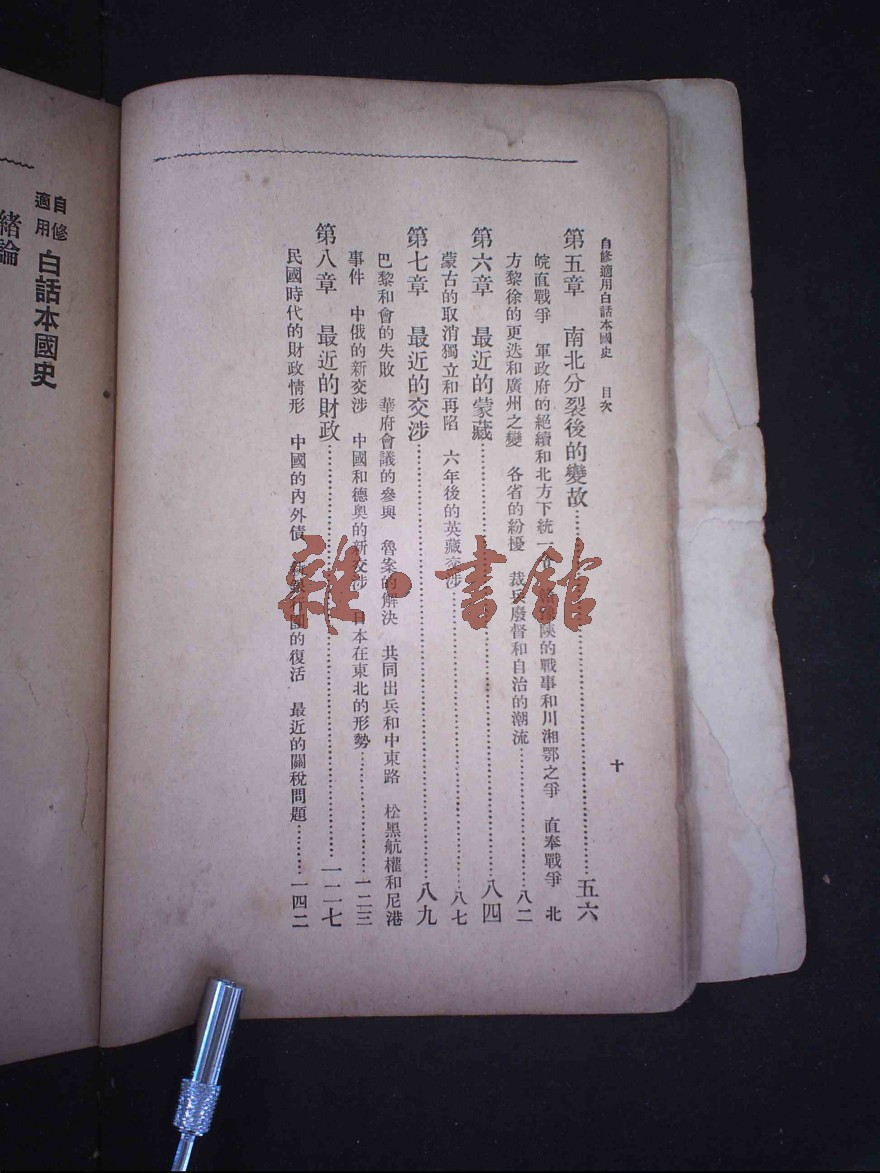 自修適用白話本國史 目次 十
第五章 南北分裂後的變故 五六
皖直戰爭 軍政府的絕續和北方下統一 陝的戰事和川湘鄂之爭 直奉戰爭 北
方黎徐的更迭和廣州之變 各省的紛擾 裁兵廢督和自治的潮流 八二
第六章 最近的蒙藏 八四
蒙古的取消獨立和再陷 六年後的英藏交涉 八七
第七章 最近的交涉 八九
巴黎和會的失敗 華府會議的參與 魯案的解決 共同出兵和中東路 松黑航權和尼港
事件 中俄的新交涉 中國和德奧的新交涉 日本在東北的形勢 一二三
第八章 最近的財政 一二七
民國時代的財政情形 中國的內外債 銀行團的復活 最近的關稅問題 一四二
雜·書館
自修適用 白話本國史
緒論